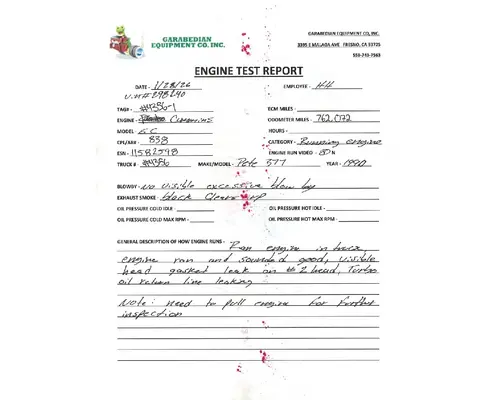 GARABEDIAN
EQUIPMENT CO. INC.
GARABEDIAN EQUIPMENT CO, INC.
3395 E MALAGA AVE FRESNO, CA 93725
ENGINE TEST REPORT
DATE - 1/28/26 EMPLOYEE - HH
TAG# - #4386-1 ECM MILES -
ENGINE - Cummins ODOMETER MILES - 762,072
MODEL - HOURS -
CPL/AR# - 838 CATEGORY - Running engine
ESN - 11582598 ENGINE RUN VIDEO -
TRUCK # - #4386 MAKE/MODEL - Pete 377 YEAR - 1990
BLOWBY - no visible excessive blow by
EXHAUST SMOKE - black Clears up
OIL PRESSURE COLD IDLE - OIL PRESSURE HOT IDLE -
OIL PRESSURE COLD MAX RPM - OIL PRESSURE HOT MAX RPM -
GENERAL DESCRIPTION OF HOW ENGINE RUNS - Ran engine in
engine ran and sounded good, visible
head gasket leak on #2 head, Turbo
oil return line leaking
Note: need to pull engine for further
inspection